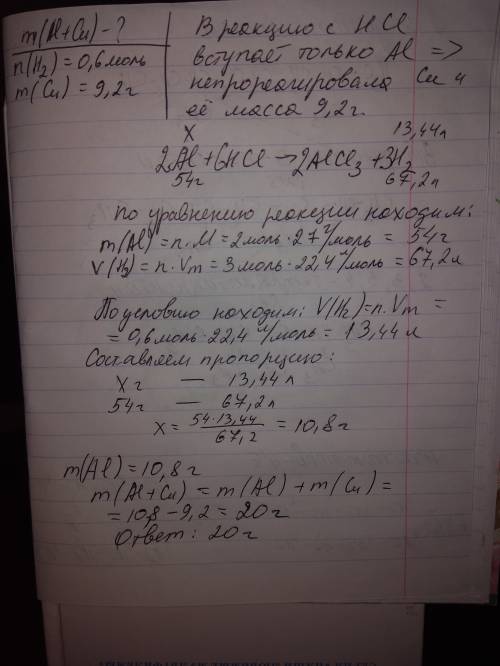 m(Al+Cu) - ?
n(H₂) = 0,6 моль
m(Cu) = 9,2 г
В реакцию с HCl
вступает только Al =>
непрореагировала Cu и
её масса 9,2 г.
x 13,44 л
2Al + 6HCl → 2AlCl₃ + 3H₂
54г 67,2 л
По уравнению реакции находим:
m(Al) = n · M = 2 моль · 27 г/моль = 54 г
V(H₂) = n · Vm = 3 моль · 22,4 л/моль = 67,2 л
По условию находим: V(H₂) = n · Vm =
= 0,6 моль · 22,4 л/моль = 13,44 л
Составляем пропорцию:
x г — 13,44 л
54 г — 67,2 л
x = 54·13,44 / 67,2 = 10,8 г
m(Al) = 10,8 г
m(Al+Cu) = m(Al) + m(Cu) =
= 10,8 – 9,2 = 20 г
Ответ: 20 г